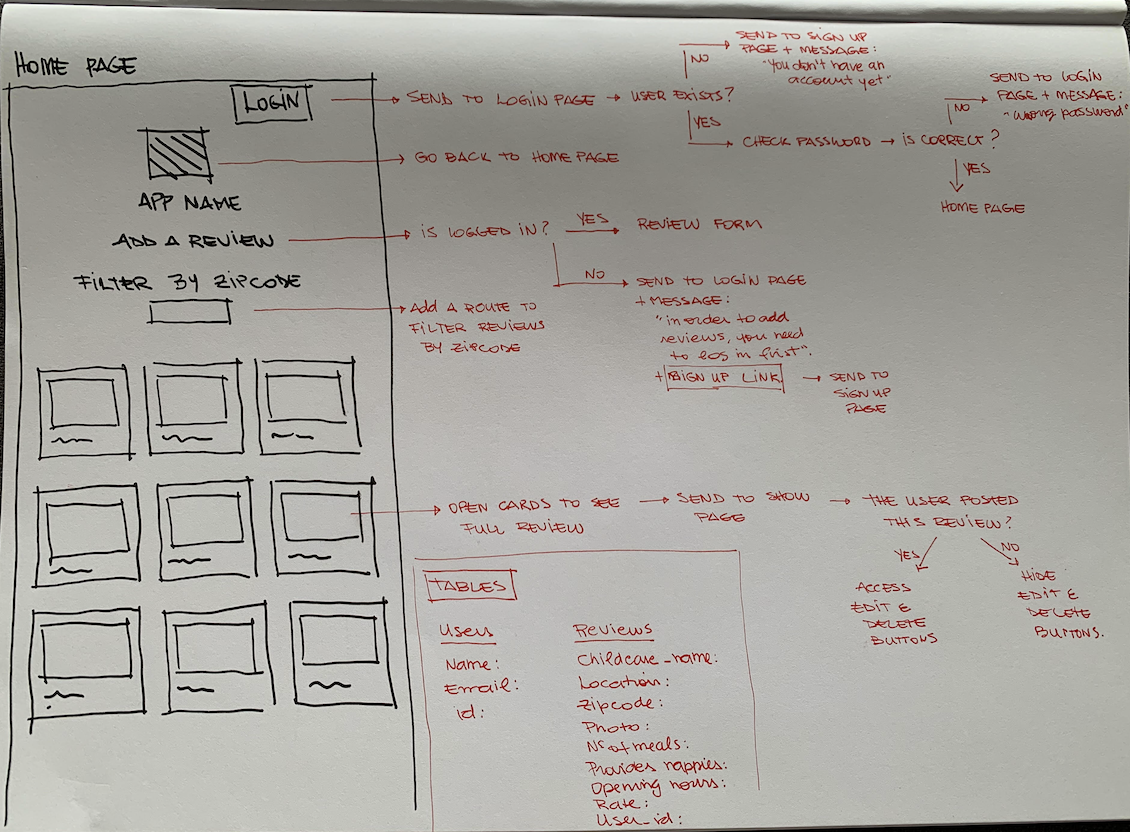 HOME PAGE
LOGIN
APP NAME
ADD A REVIEW
FILTER BY ZIPCODE
SEND TO LOGIN PAGE → USER EXISTS?
NO
SEND TO SIGN UP
PAGE + MESSAGE:
"You don't have an
account yet"
YES
CHECK PASSWORD → IS CORRECT?
NO
SEND TO LOGIN
PAGE + MESSAGE:
"wrong password"
YES
HOME PAGE
GO BACK TO HOME PAGE
IS LOGGED IN?
YES
REVIEW FORM
NO
SEND TO LOGIN PAGE
+ MESSAGE:
"in order to add
reviews, you need
to log in first".
+ SIGN UP LINK
SEND TO
SIGN UP
PAGE
Add A ROUTE TO
FILTER REVIEWS
BY ZIPCODE
OPEN CARDS TO SEE
FULL REVIEW
SEND TO SHOW
PAGE
THE USER POSTED
THIS REVIEW?
YES
ACCESS
EDIT &
DELETE
BUTTONS
NO
HIDE
EDIT &
DELETE
BUTTONS.
TABLES
Users
Name:
Email:
id:
Reviews
Childcare_name:
Location:
Zipcode:
Photo:
Nº of meals:
Provides nappies:
Opening hours:
Rate:
User_id: